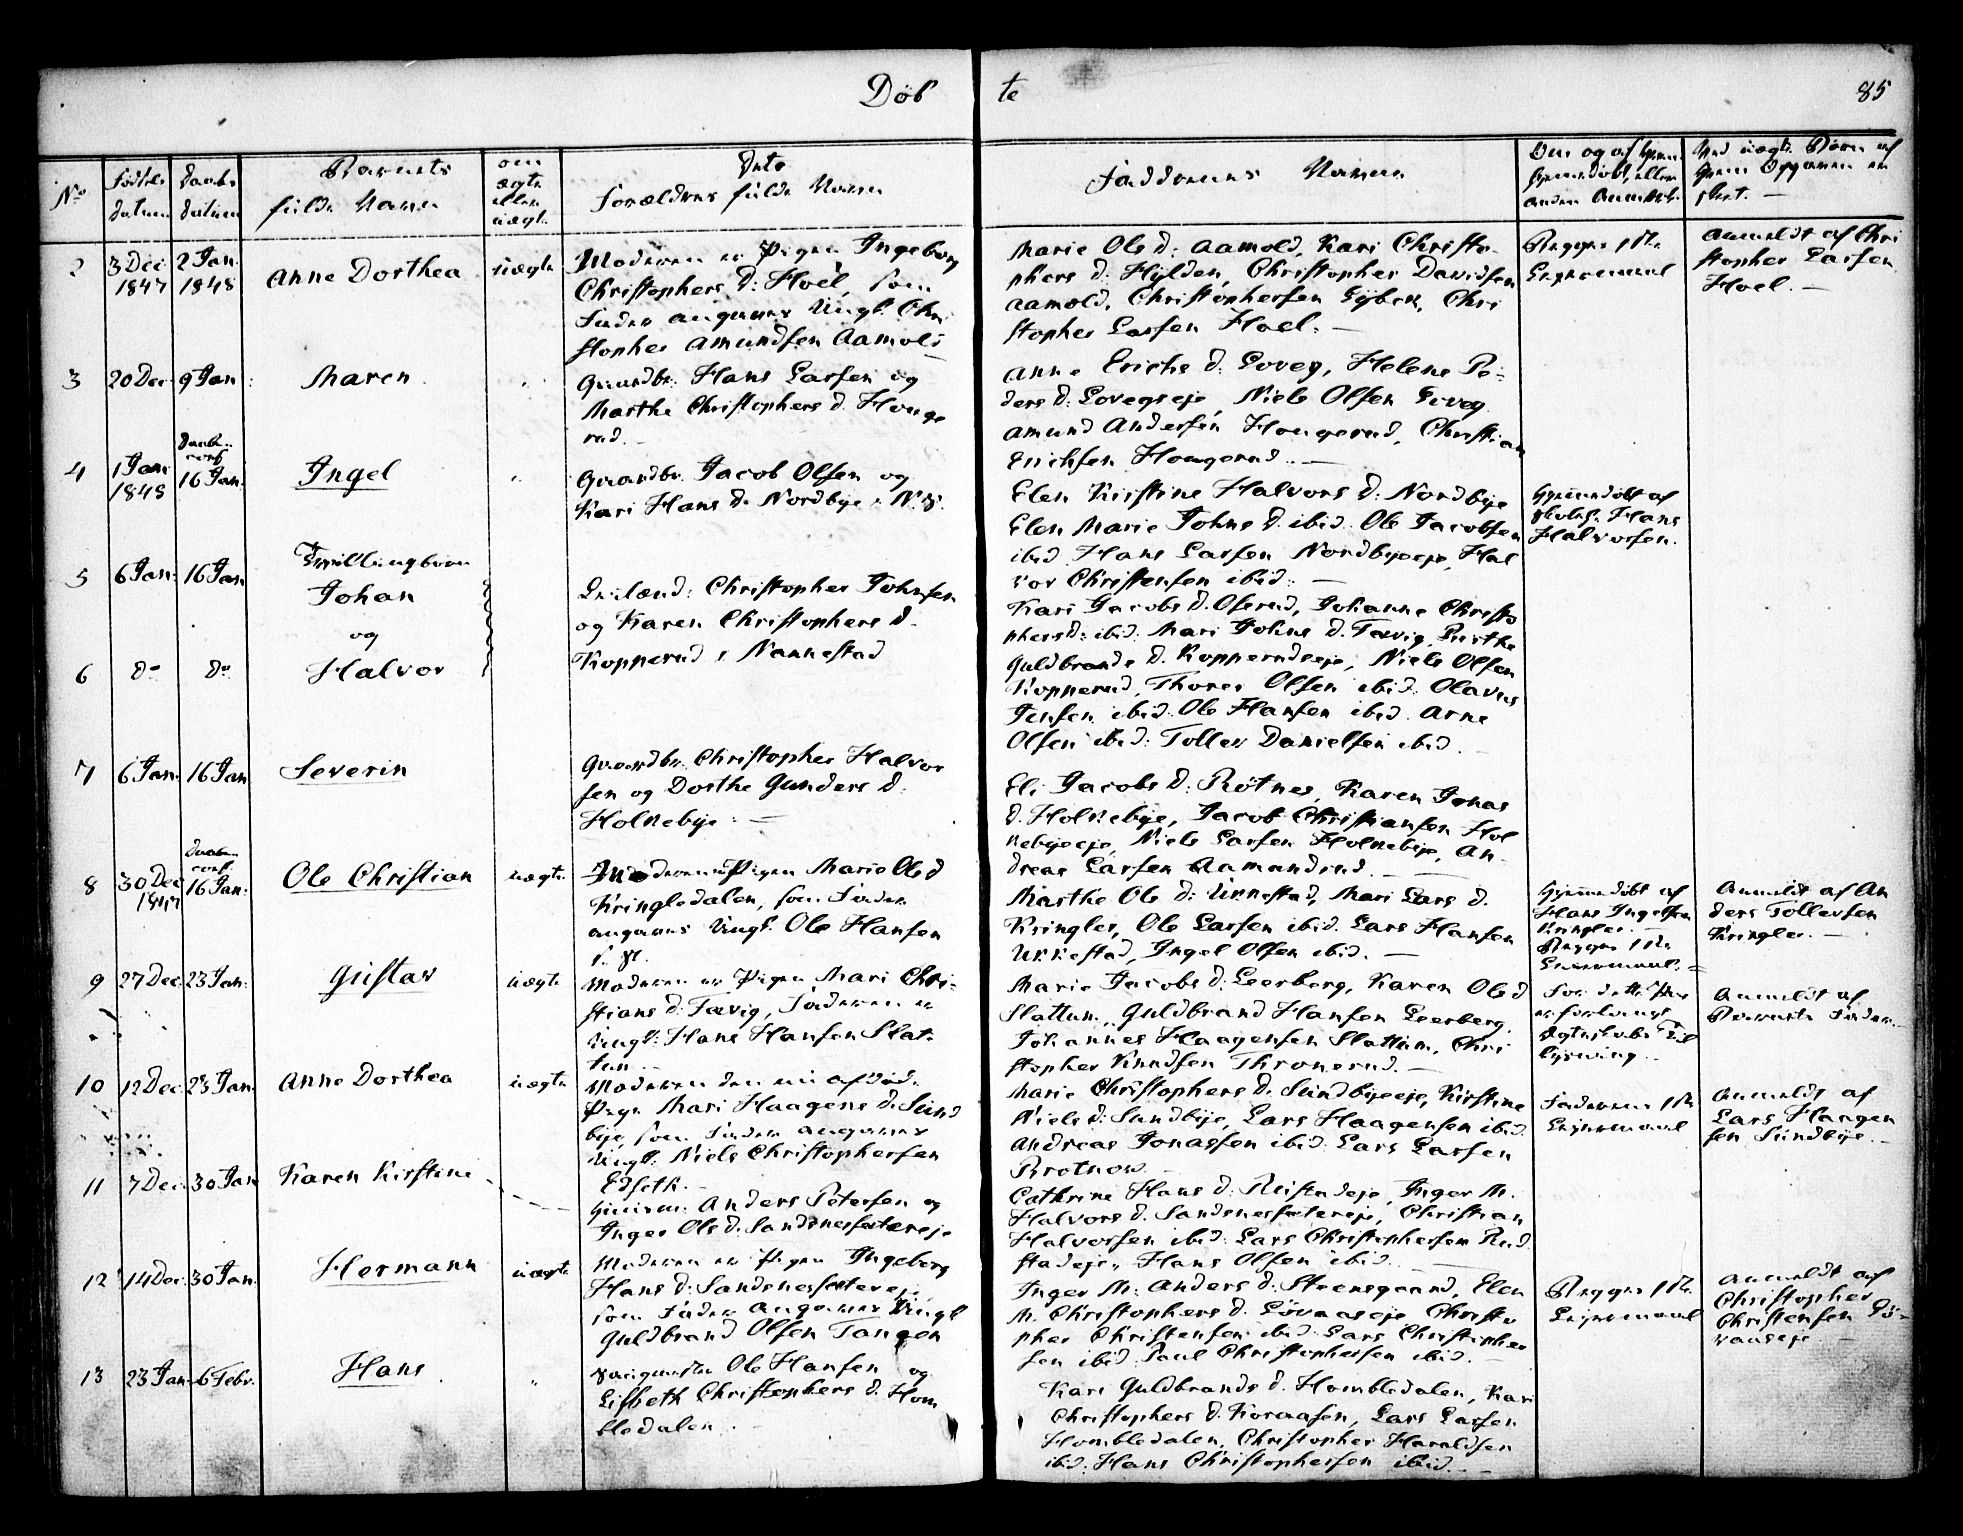 Døb te 85
No
Fødsels datum
Daabs datum
Barnets fulde Navn
om ægte eller uægt.
Dets Forældres fulde Navn
Faddernes Navne
Om og af hvem hjemmedøbt, eller anden Anmerk.
Ved uægte Børn af hvem Opgaven er skeet. —
2
3 Dec 1847
2 Jan 1848
Anne Dorthea
uægte
Moderen er Pigen Ingeborg
Christophers D: Hoel, som
Fader angives Ungk. Chri
stopher Amundsen Aamold
Marie Ols d: Aamold, Kari Christo-
phers d: Hylden, Christopher Davidsen
Aamold, Christophersen Gÿbek, Chri
stopher Larsen Hoel. —
Begges 1ste
Leiermaal
Anmeldt af Chri
stopher Larsen
Hoel. —
3
20 Dec
9 Jan:
Maren
Gaardbr. Hans Larsen og
Marthe Christophers d. Houge
rud. —
Anne Erichs d. Loveg, Helene Pe-
ders d: Lovegseje, Niels Olsen Loveg
Amund Andersen Hougerud, Christian
Erichsen Hougerud. —
4
1 Jan: 1848
Daab conf 16 Jan:
Ingel
Gaardbr. Jacob Olsen og
Kari Hans d. Nordbye i N.S.
Elen Kirstine Halvors d: Nordbye
Elen Marie Johns d. ibid. Ole Jacobsen
ibid Hans Larsen Nordbyeeje, Hal
vor Christensen ibid: —
Hjemmedøbt af
Skolel. Hans
Halvorsen.
5
6 Jan:
16 Jan
Tvillingbørn
Johan
og
Indlænd: Christopher Johnsen
og Karen Christophers d.
Kopperud i Nannestad
Kari Jacobs d. Oserud, Johanne Christo
phers d: ibid: Mari Johns d. Tævig, Birthe
Guldbrands d. Kopperudseje, Niels Olsen
Kopperud, Thores Olsen ibid. Olavus
Jensen ibid. Ole Hansen ibid. Arne
Olsen ibid: Tollev Danielsen ibid.
6
do
do
Halvor
7
6 Jan.
16 Jan
Severin
Gaardbr. Christopher Halvor
sen og Dorthe Gunders d.
Holkebye. —
Eli Jacobs d: Rötnes, Karen Jonas
d. Holkebye, Jacob Christiansen Hol
kebyeeje, Niels Larsen Holkebye, An-
dreas Larsen Aamandrud. —
8
30 Dec 1847
Daab conf 16 Jan:
Ole Christian
uægte
Moderen er Pigen Marie Ols d
Kringledalen, som Fader
angives Ungk. Ole Hansen
Marthe Ols d: Ukkestad, Mari Lars d.
Kringler, Ole Larsen ibid. Lars Hansen
Ukkestad, Ingel Olsen ibid. —
Hjemmedøbt af
Hans Ingelsen
Kringler. —
Begges 1ste
Leiermaal. —
Anmeldt af An
ders Tollevsen
Kringler. —
9
27 Dec
23 Jan:
Gustav
uægte
Moderen er Pigen Mari Chri-
stians d: Tævig, Faderen er
Ungk: Hans Hansen Slat-
tun. —
Marie Jacobs d: Leerberg, Karen Ols d
Slattun, Guldbrand Hansen Leerberg,
Johannes Haagensen Slattum, Chri
stopher Knudsen Thronerud. —
For dette Par
er forlangt
Ægteskabs Til
lysning. —
Anmeldt af
Barnets Fader. —
10
12 Dec
23 Jan.
Anne Dorthea
uægte
Moderen den nu afdøde
Pige Mari Haagens d. Sund
bye, som Fader angives
Ungk: Niels Christophersen
Edseth. —
Marie Christophers d. Sundbyeeje, Kirstine
Niels d: Sundbye, Lars Haagensen ibid.
Andreas Jonassen ibid. Lars Larsen
Brotnow. —
Faderens 1ste
Leiermaal
Anmeldt af
Lars Haagen
sen Sundbye. —
11
7 Dec.
30 Jan
Karen Kirstine
Huusm: Anders Petersen og
Inger Ols d. Sandsnesfætereje
Cathrine Hans d: Rustadeje, Inger M.
Halvors d. Sandsnesfætereje, Christian
Halvorsen ibid: Lars Christophersen Rud
stadeje, Hans Olsen ibid. —
12
14 Dec.
30 Jan.
Hermann
uægte
Moderen er Pigen Ingeborg
Hans d: Sandsnesfætereje,
som Fader angives Ungk
Guldbrand Olsen Tangen
Inger M: Anders d. Steensgaard, Elen
M. Christophers d. Lövaaseje Christo
pher Christensen ibid. Lars Christopher
sen ibid. Paul Christophersen ibid. —
Begges 1ste
Leiermaal
Anmeldt af
Christopher
Christensen Lö-
vaaseje —
13
23 Jan.
6 Febr.
Hans
Ole Hansen og
Lisbeth Christophers d. Hom
bledalen. —
Kari Guldbrands d. Hombledalen, Kari
Christophers d. Koraasen, Lars Larsen
Hombledalen, Christopher Haraldsen
ibid: Hans Christophersen ibid. —